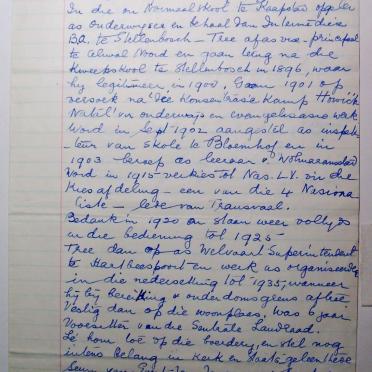 In die ou Normaalskool te Kaapstad opgelei
as onderwyser en behaal dan Intermediêre
B.A. te Stellenbosch – Tree af as vise-principaal
te Aliwal Noord en gaan terug na die
Kweekskool te Stellenbosch in 1896, waar
hy legitimeer in 1900. Gaan 1901 op
versoek na Die Konsentrasie Kamp Howick
Natal vir onderwys en evangelisasie werk
Word in Sept 1902 aangestel as inspek-
teur van skole te Bloemhof en in
1903 beroep as leeraar v. Wolmaransstad
Word in 1915 verkies tot Nas. L.V. vir die
Kiesafdeling – een van die 4 Nasiona
liste – lede van Transvaal.
Bedank in 1920 en staan weer voltyds
in die bediening tot 1925 –
Tree dan op as Welvaart Superintendent
te Hartbeespoort en werk as organiseerder
in die nedersetting tot 1935, wanneer
hy bereiking v. ouderdomsgrens aftree
Vestig dan op die woonplaas, was 6 jaar
Voorsitter van die Sentrale Landraad.
Lê hom toe op die boerdery, en stel nog
intens belang in Kerk en Staats geleenthede
Seun van